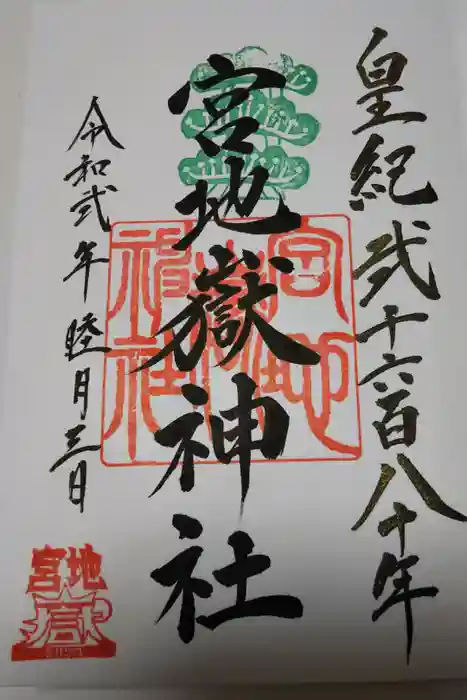 皇紀弐千六百八十年
宮地嶽神社
令和弐年睦月三日
宮地嶽神社
宮地
嶽